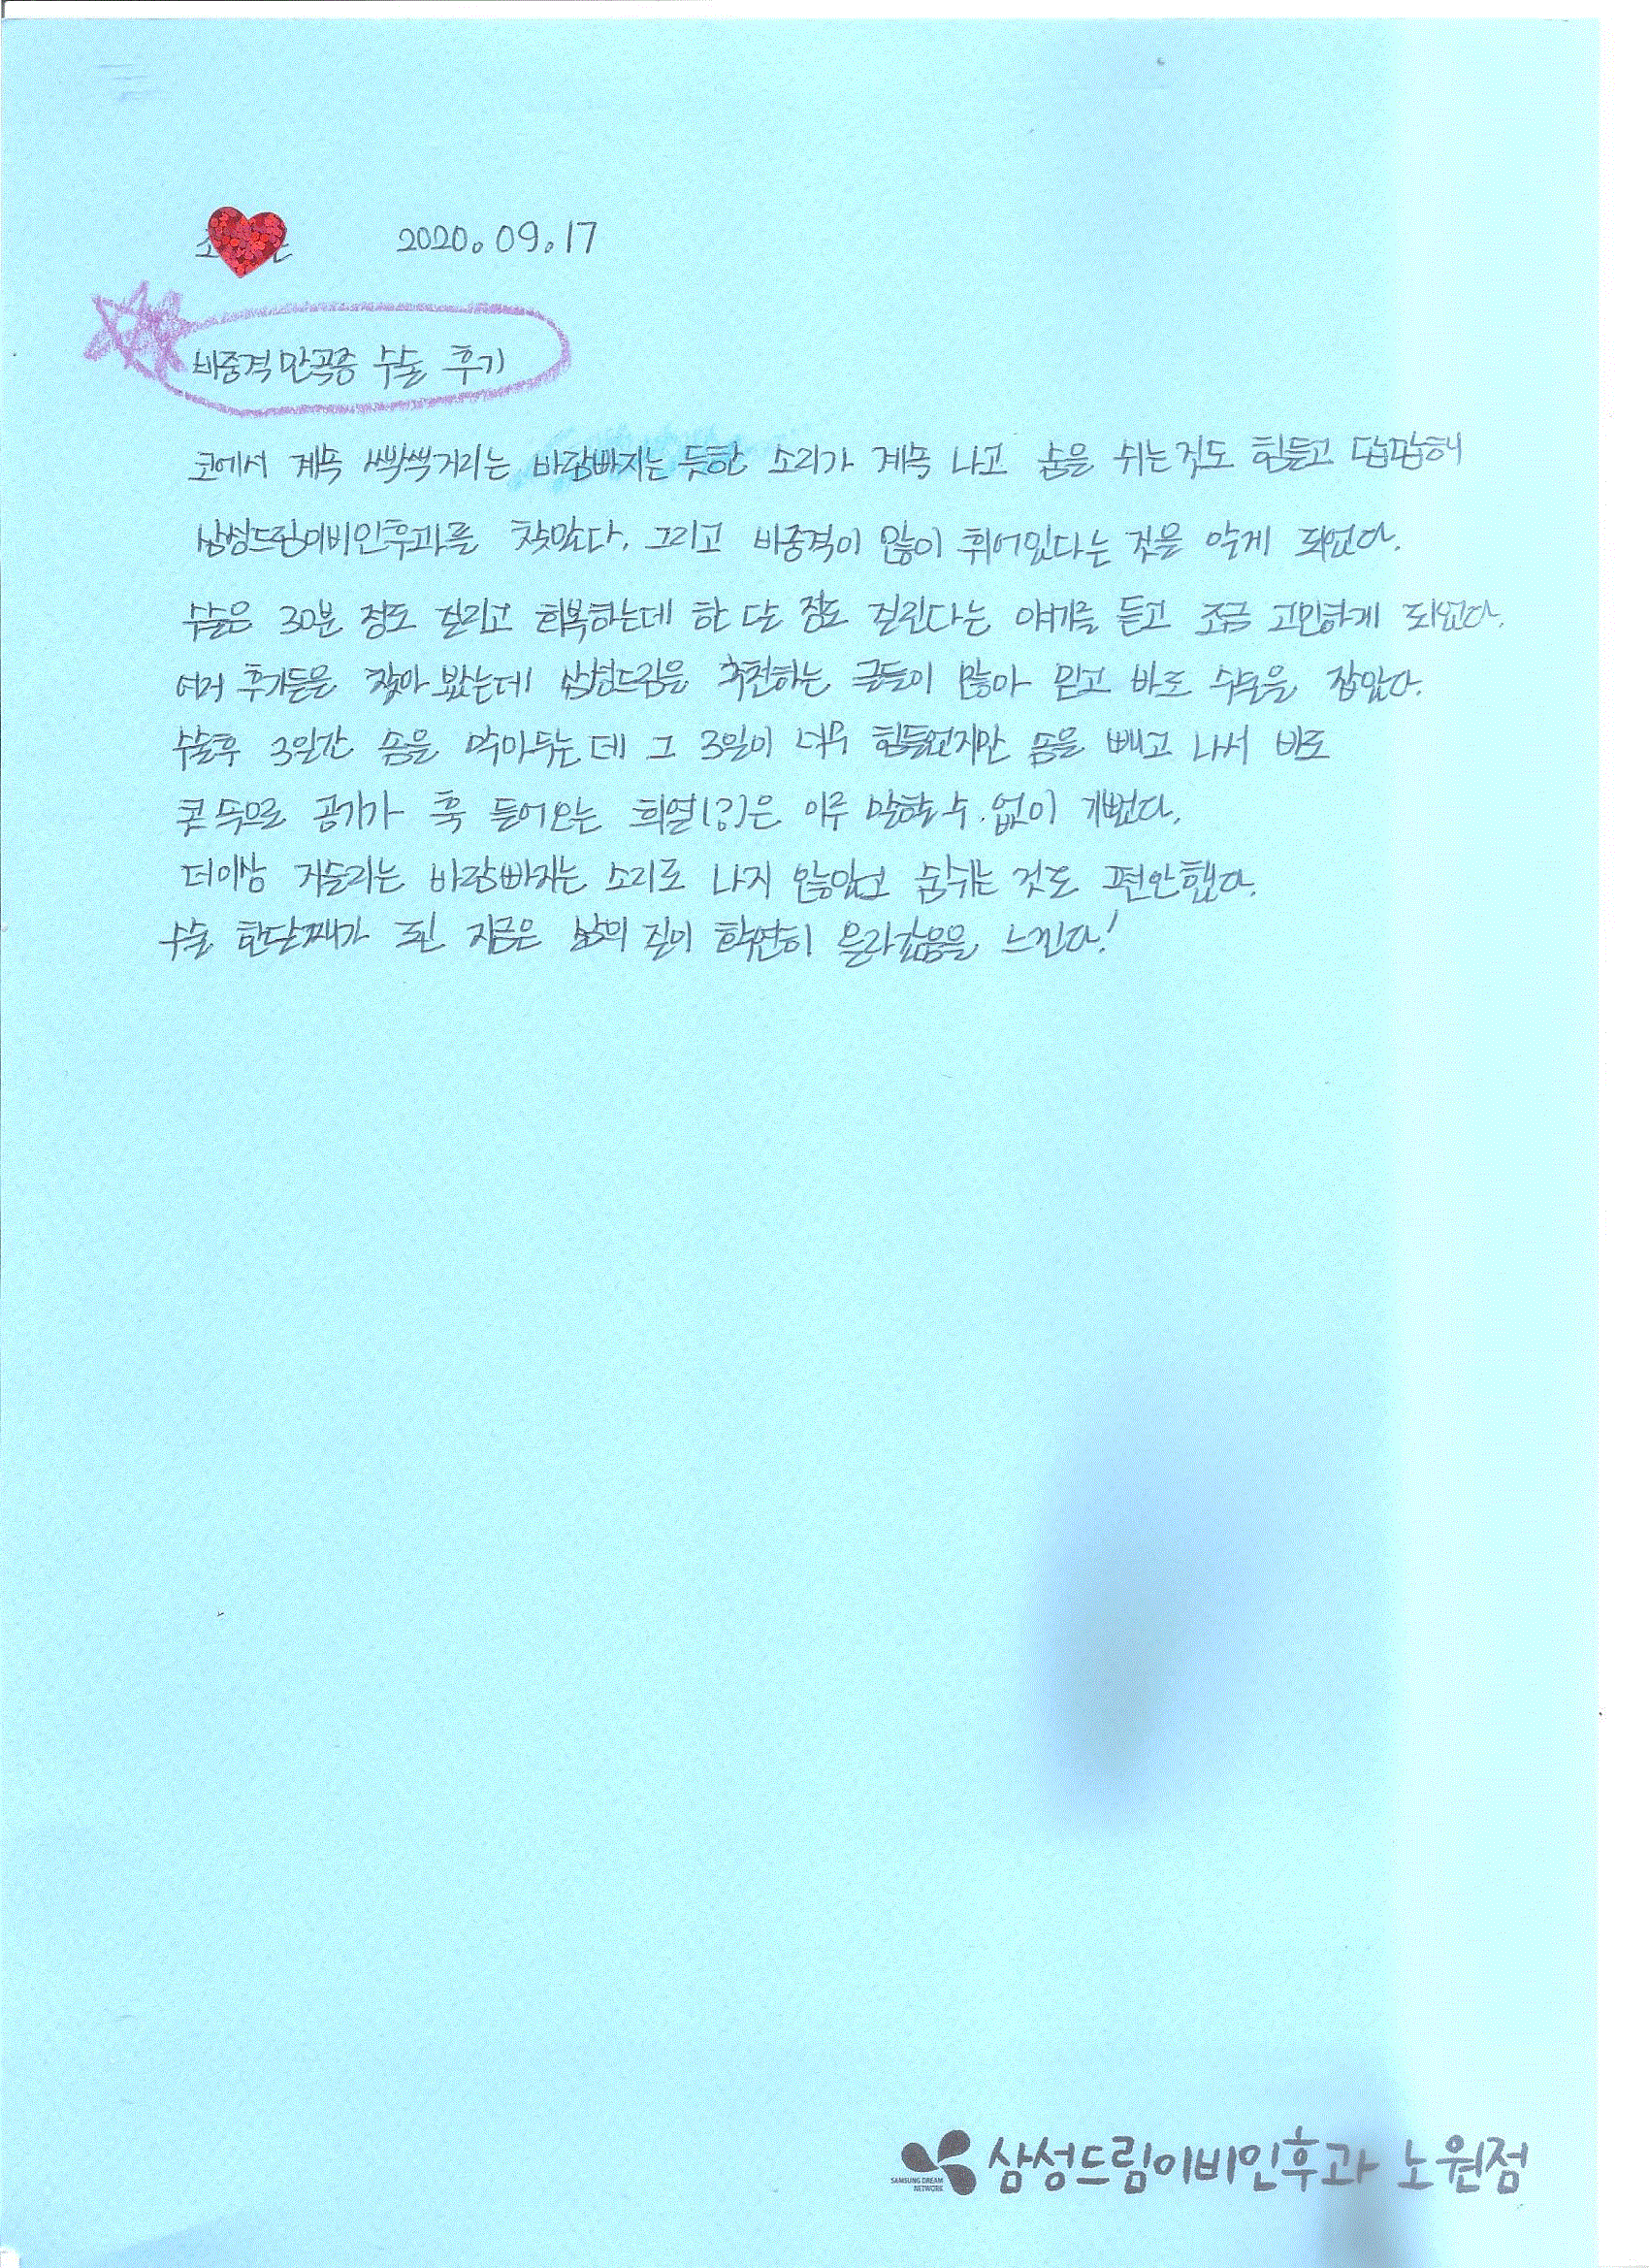 2020.09.17
비중격만곡증 수술 후기
코에서 계속 쌕쌕거리는 바람빠지는 듯한 소리가 계속 나고 숨을 쉬는것도 힘들고 답답해
삼성드림이비인후과를 찾았다. 그리고 비중격이 많이 휘어있다는 것을 알게 되었다.
수술은 30분 정도 걸리고 회복하는데 한 달 정도 걸린다는 얘기를 듣고 조금 고민하게 되었다.
여러 후기들을 찾아 봤는데 삼성드림을 추천하는 글들이 많아 믿고 바로 수술을 잡았다.
수술후 3일간 솜을 막아두는데 그 3일이 너무 힘들었지만 솜을 빼고 나서 바로
콧 속으로 공기가 훅 들어오는 희열(?)은 이루 말할 수 없이 기뻤다.
더이상 거슬리는 바람빠지는 소리도 나지 않았고 숨쉬는 것도 편안했다.
수술 한달째가 된 지금은 삶의 질이 확연히 올라갔음을 느낀다!
삼성드림이비인후과 노원점
SAMSUNG DREAM
NETWORK